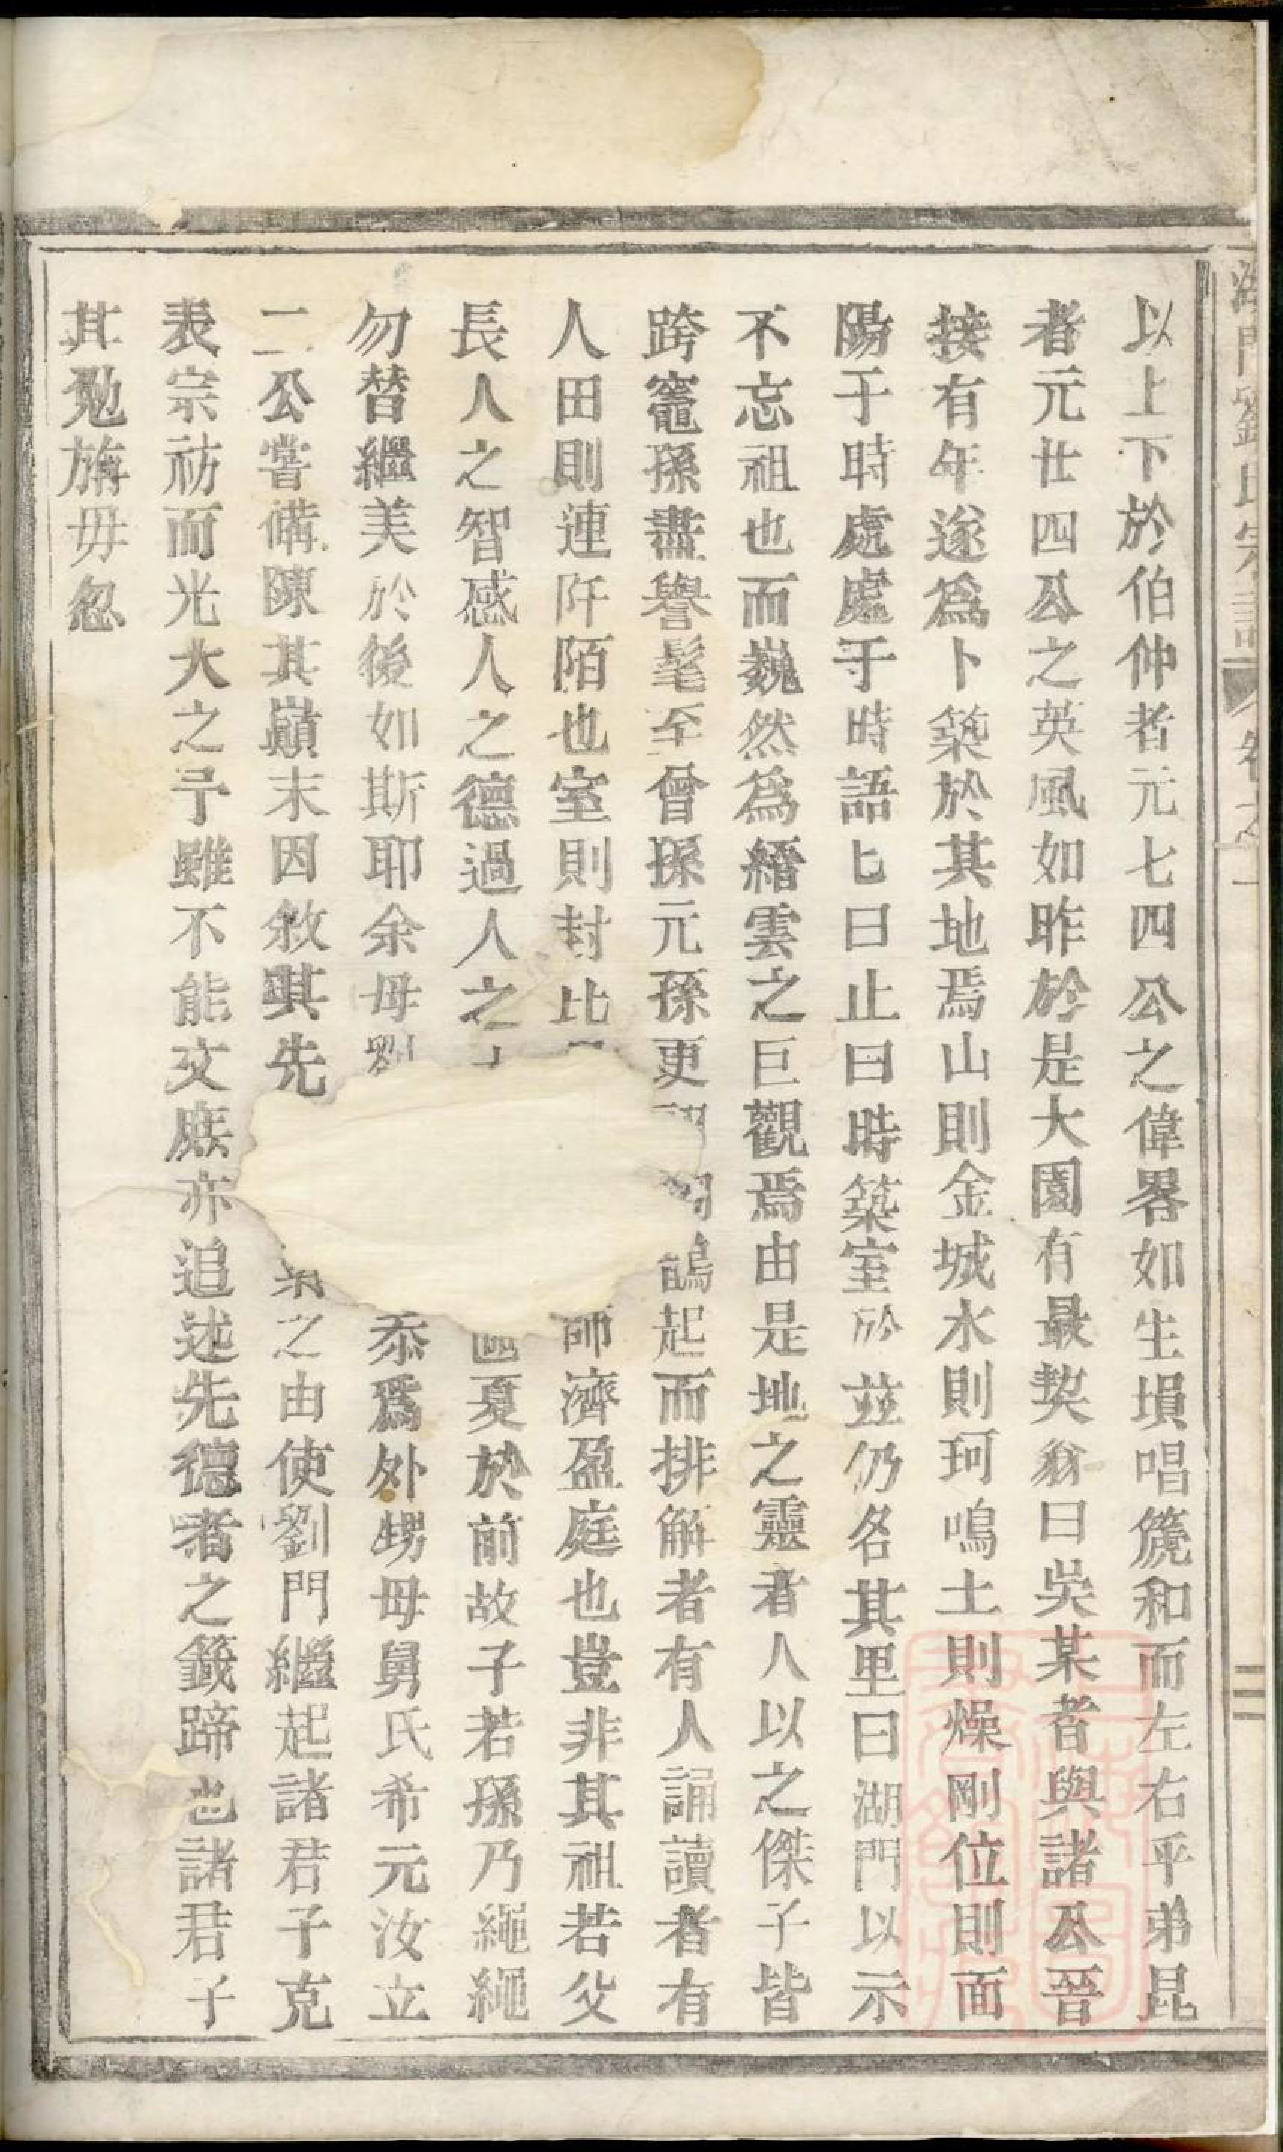 湖門劉氏宗譜 卷之一 二
以上下於伯仲者元七四公之偉畧如生塤唱篪和而左右平弟昆
者元廿四公之英風如昨於是大園有最契翁曰吳某者與諸公晉
接有年遂爲卜築於其地焉山則金城水則珂鳴土則燥剛位則面
陽于時處處于時語匕曰止曰時築室於茲仍名其里曰湖門以示
不忘祖也而巍然爲縉雲之巨觀焉由是地之靈者人以之傑子皆
跨竈孫盡譽髦至曾孫元孫更鵲起而排解者有人誦讀者有
人田則連阡陌也室則封比師濟盈庭也豈非其祖若父
長人之智感人之德過人之夏於前故子若孫乃繩繩
勿替繼美於後如斯耶余母劉忝爲外甥母舅氏希元汝立
二公嘗備陳其巔末因敘其先之由使劉門繼起諸君子克
表宗祊而光大之予雖不能文庶亦追述先德者之籛蹄也諸君子
其勉旃毋忽